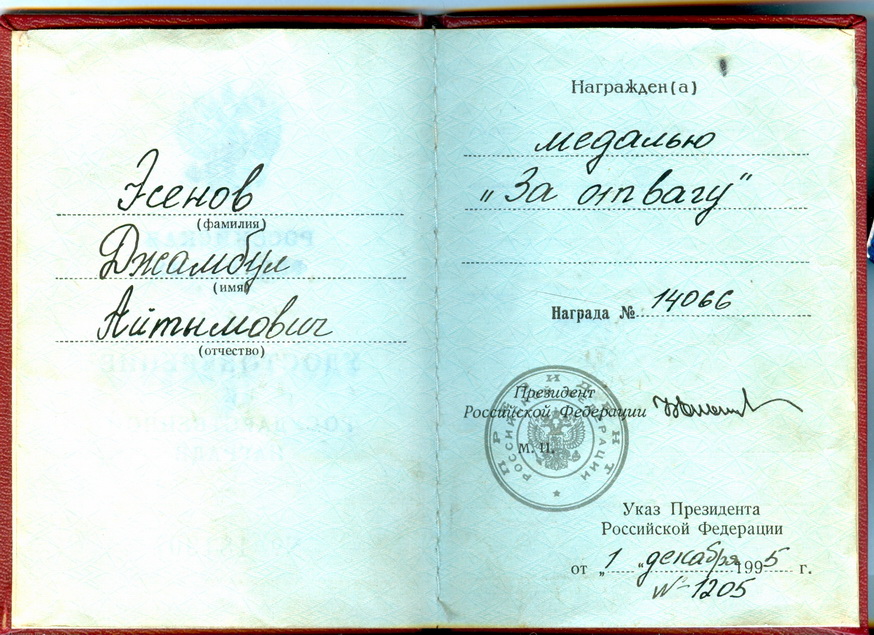 Эсенов
(фамилия)
Джамбул
(имя)
Айтымович
(отчество)
Награжден(а)
медалью
„За отвагу”
Награда № 14066
Президент
Российской Федерации
М. П.
Указ Президента
Российской Федерации
от „1“ декабря 1995 г.
№ 1205